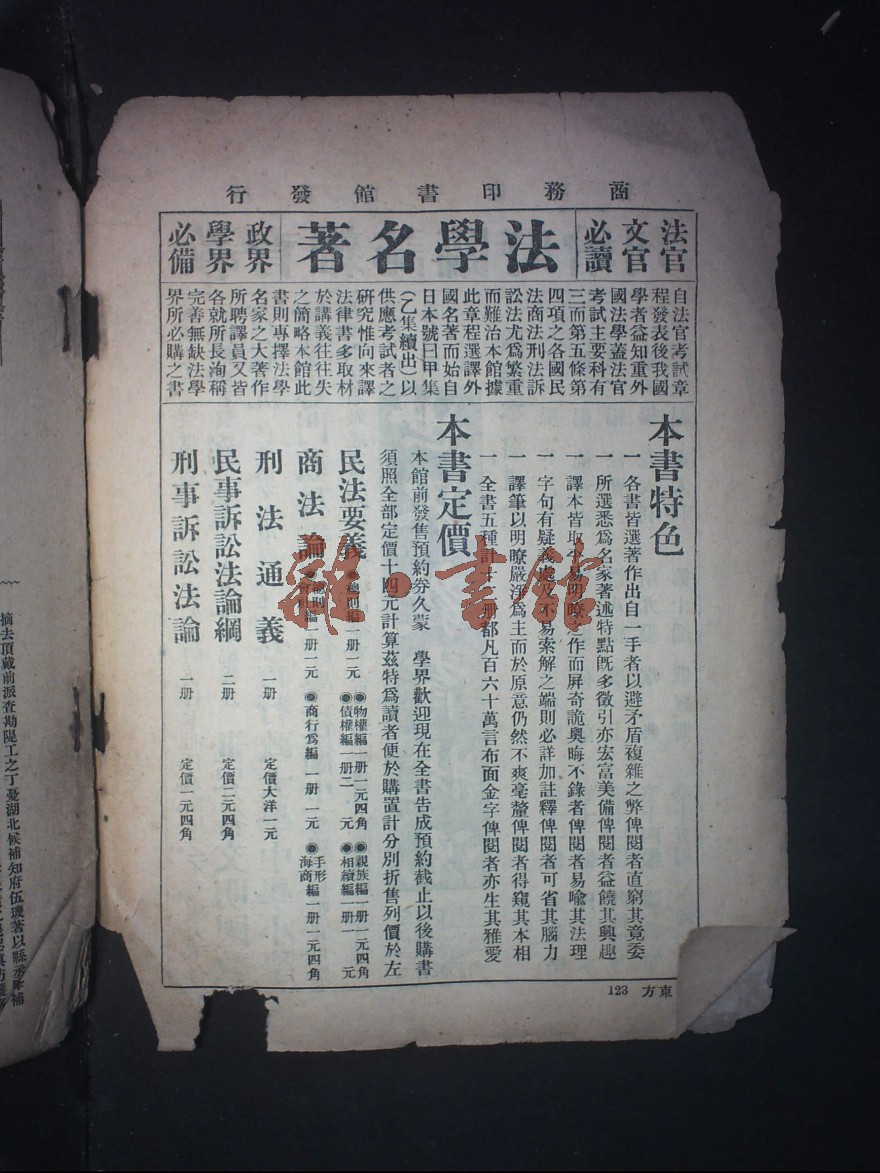 商務印書館發行
法官文官必讀
法學名著
政界學界必備
自法官考試章
程發表後我國
學者益知重外
國法學蓋法官
考試主要科有
三而第五條第
四項之各國民
法商法刑法訴
訟法尤爲繁重
而難治本館據
此章程選譯外
國名著而始自
日本號曰甲集
(乙集續出)以
供應考試者之
研究惟向來譯
法律書多取材
於講義往往失
之簡略本館此
書則專擇法學
名家之大著作
所聘譯員又皆
各就所長洵稱
完善無缺法學
界所必購之書
本書特色
一 各書皆選著作出自一手者以避矛盾複雜之弊俾閱者直窮其竟委
一 所選悉爲名家著述特點旣多徵引亦宏富美備俾閱者益饒其興趣
一 譯本皆取平易明瞭之作而屏奇詭奧晦不錄者俾閱者易喩其法理
一 字句有疑義處及不易索解之端則必詳加註釋俾閱者可省其腦力
一 譯筆以明瞭嚴淨爲主而於原意仍然不爽毫釐俾閱者得窺其本相
一 全書五種計十 册都凡百六十萬言布面金字俾閱者亦生其雅愛
本書定價
本館前發售預約券久蒙 學界歡迎現在全書告成預約截止以後購書
須照全部定價十四元計算茲特爲讀者便於購置計分別折售列價於左
民法要義 ◉總則編一册二元 ◉物權編一册一元四角 ◉債權編一册二元 ◉親族編一册一元四角 ◉相續編一册一元
商法論 ◉總則編 ◉會社編 一册一元 ◉商行爲編一册一元 ◉手形編 海商編 一册一元四角
刑法通義 一册 定價大洋一元
民事訴訟法論綱 二册 定價二元四角
刑事訴訟法論 一册 定價一元四角
東方 123
摘去頂戴前派查勘隄工之丁憂湖北候補知府伍璣著以縣丞降補
雜·書館